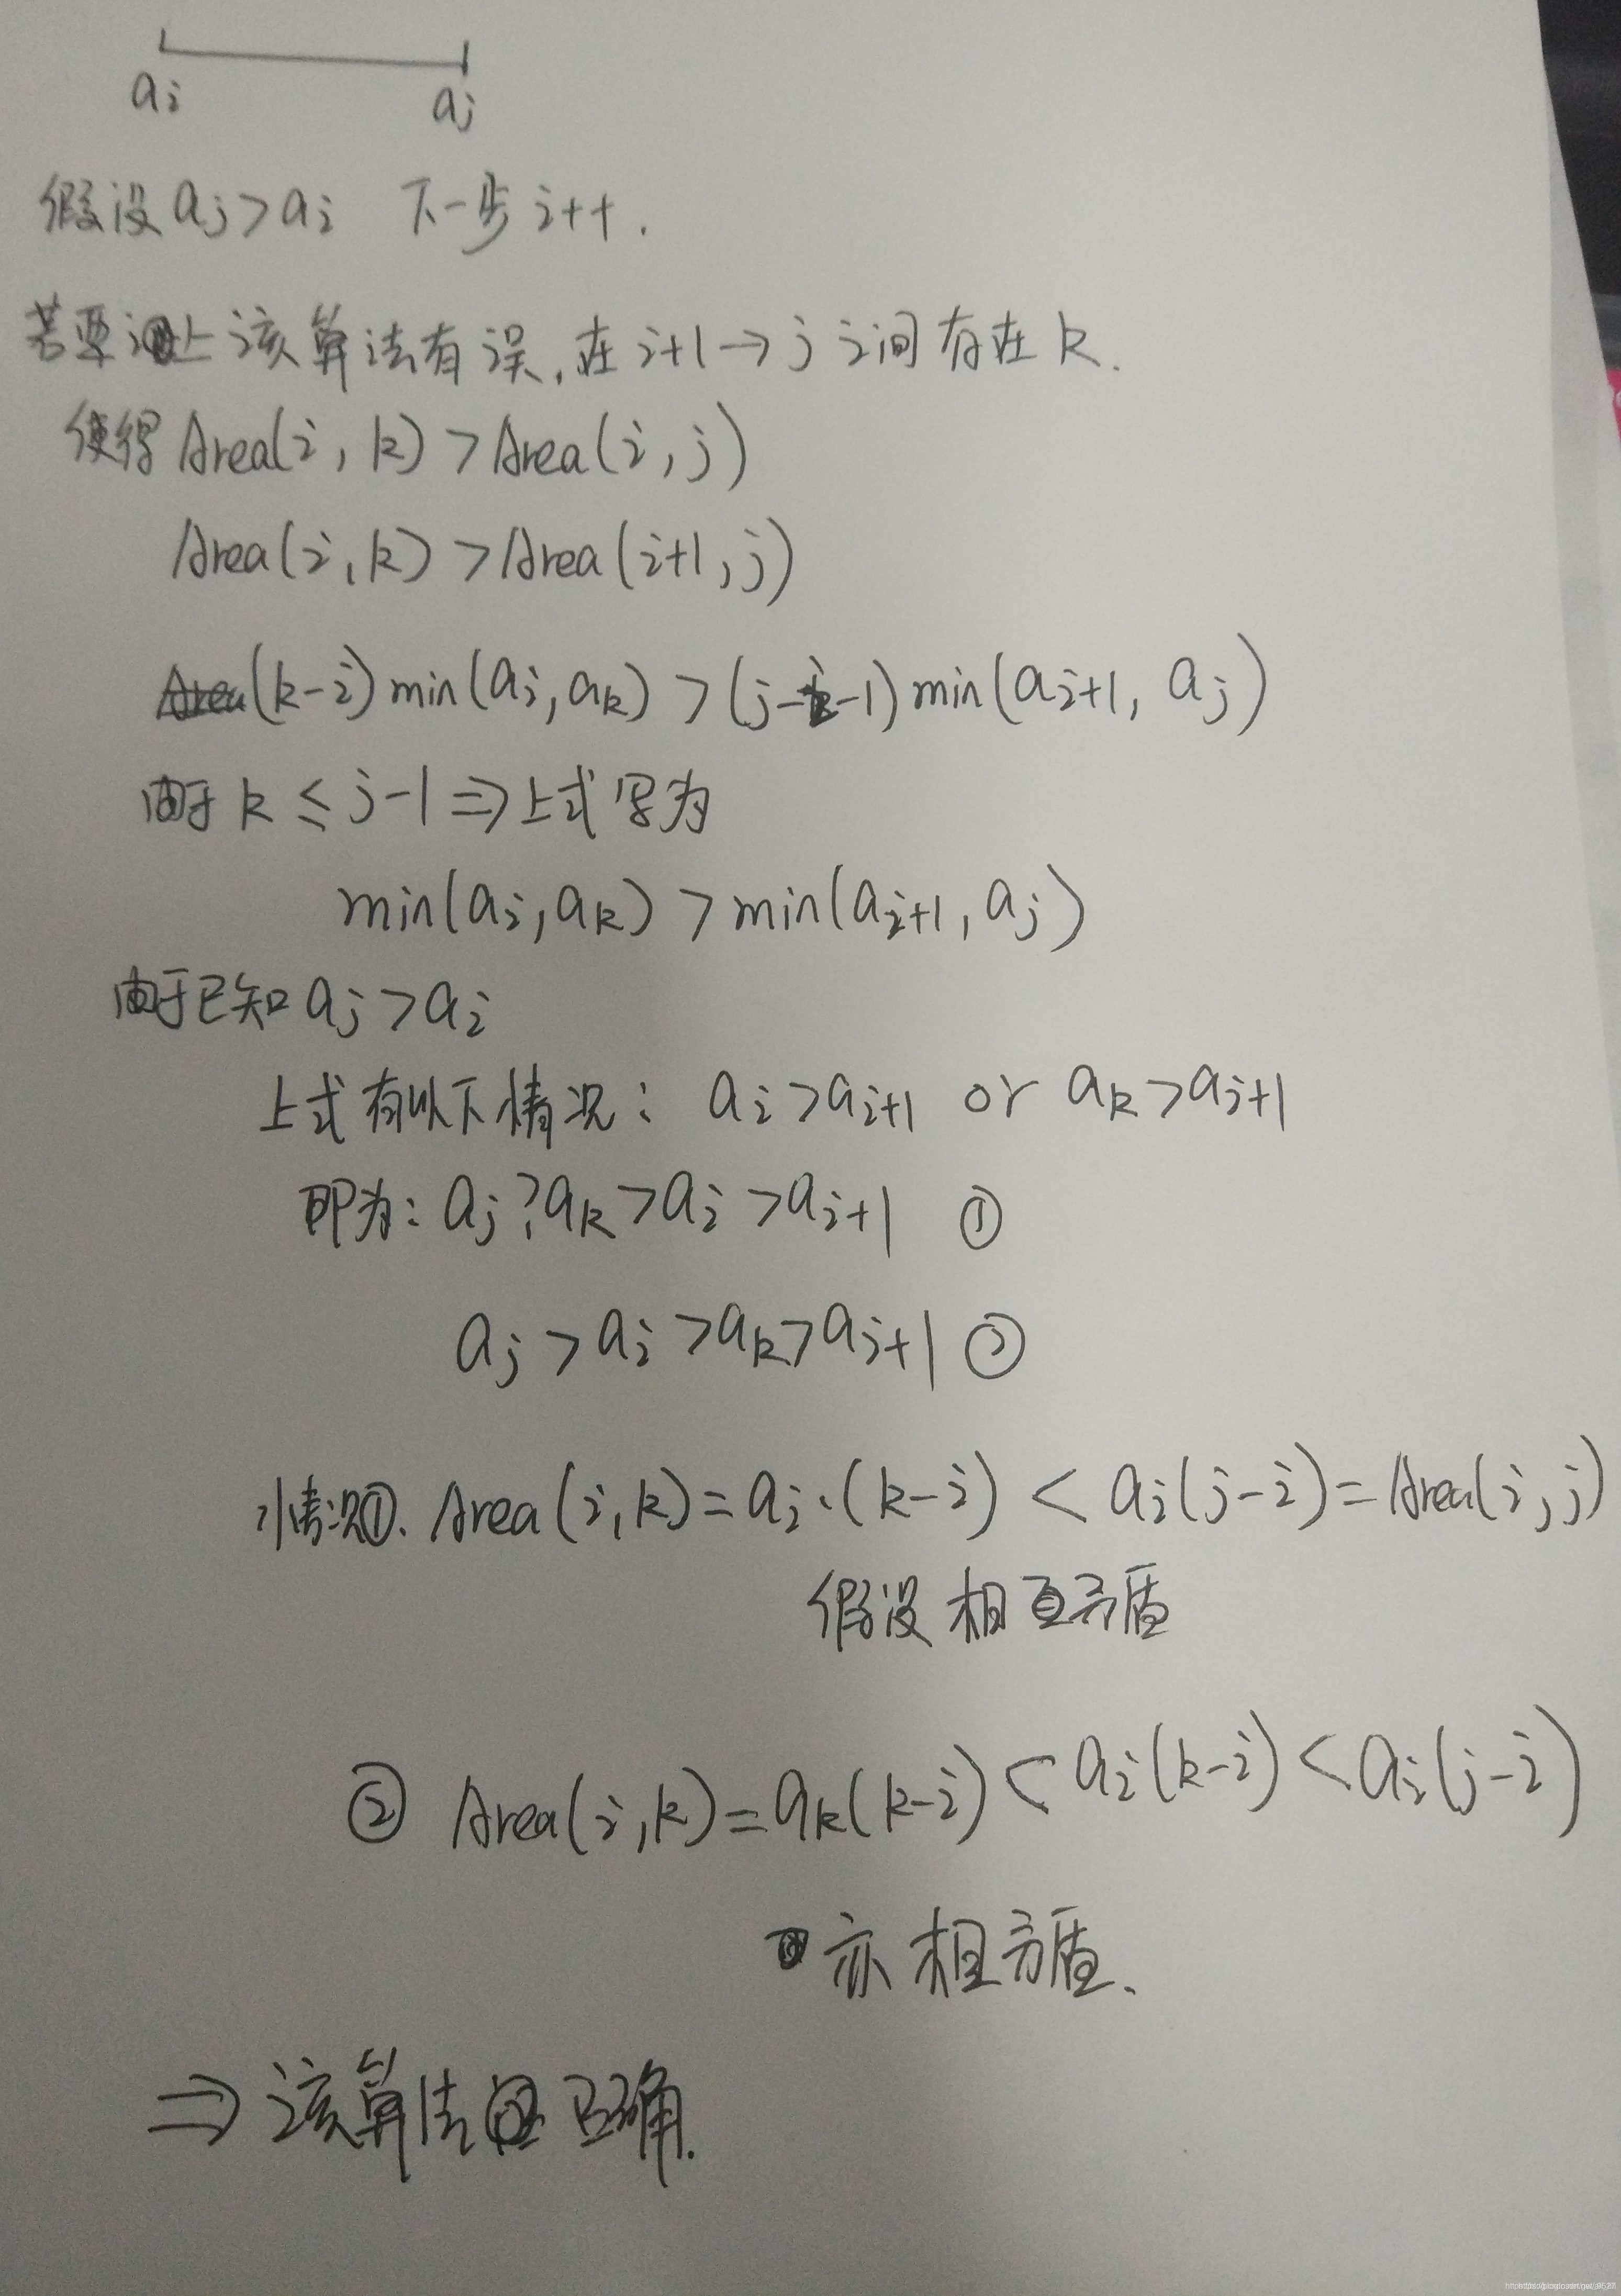 ai aj
假设 aj > ai 下一步 i++.
若要让 该算法有误,在 i+1 → j 之间存在 k.
使得 Area(i, k) > Area(i, j)
Area(i, k) > Area(i+1, j)
(k-i) min(ai, ak) > (j-i-1) min(ai+1, aj)
由于 k ≤ j-1 ⇒ 上式写为
min(ai, ak) > min(ai+1, aj)
由于已知 aj > ai
上式有以下情况: ai > ai+1 or ak > ai+1
即为: aj ? ak > ai > ai+1 ①
aj > ai > ak > ai+1 ②
情况①. Area(i, k) = ai·(k-i) < ai(j-i) = Area(i, j)
假设相互矛盾
② Area(i, k) = ak(k-i) < ai(k-i) < ai(j-i)
亦相矛盾.
⇒ 该算法 正确.